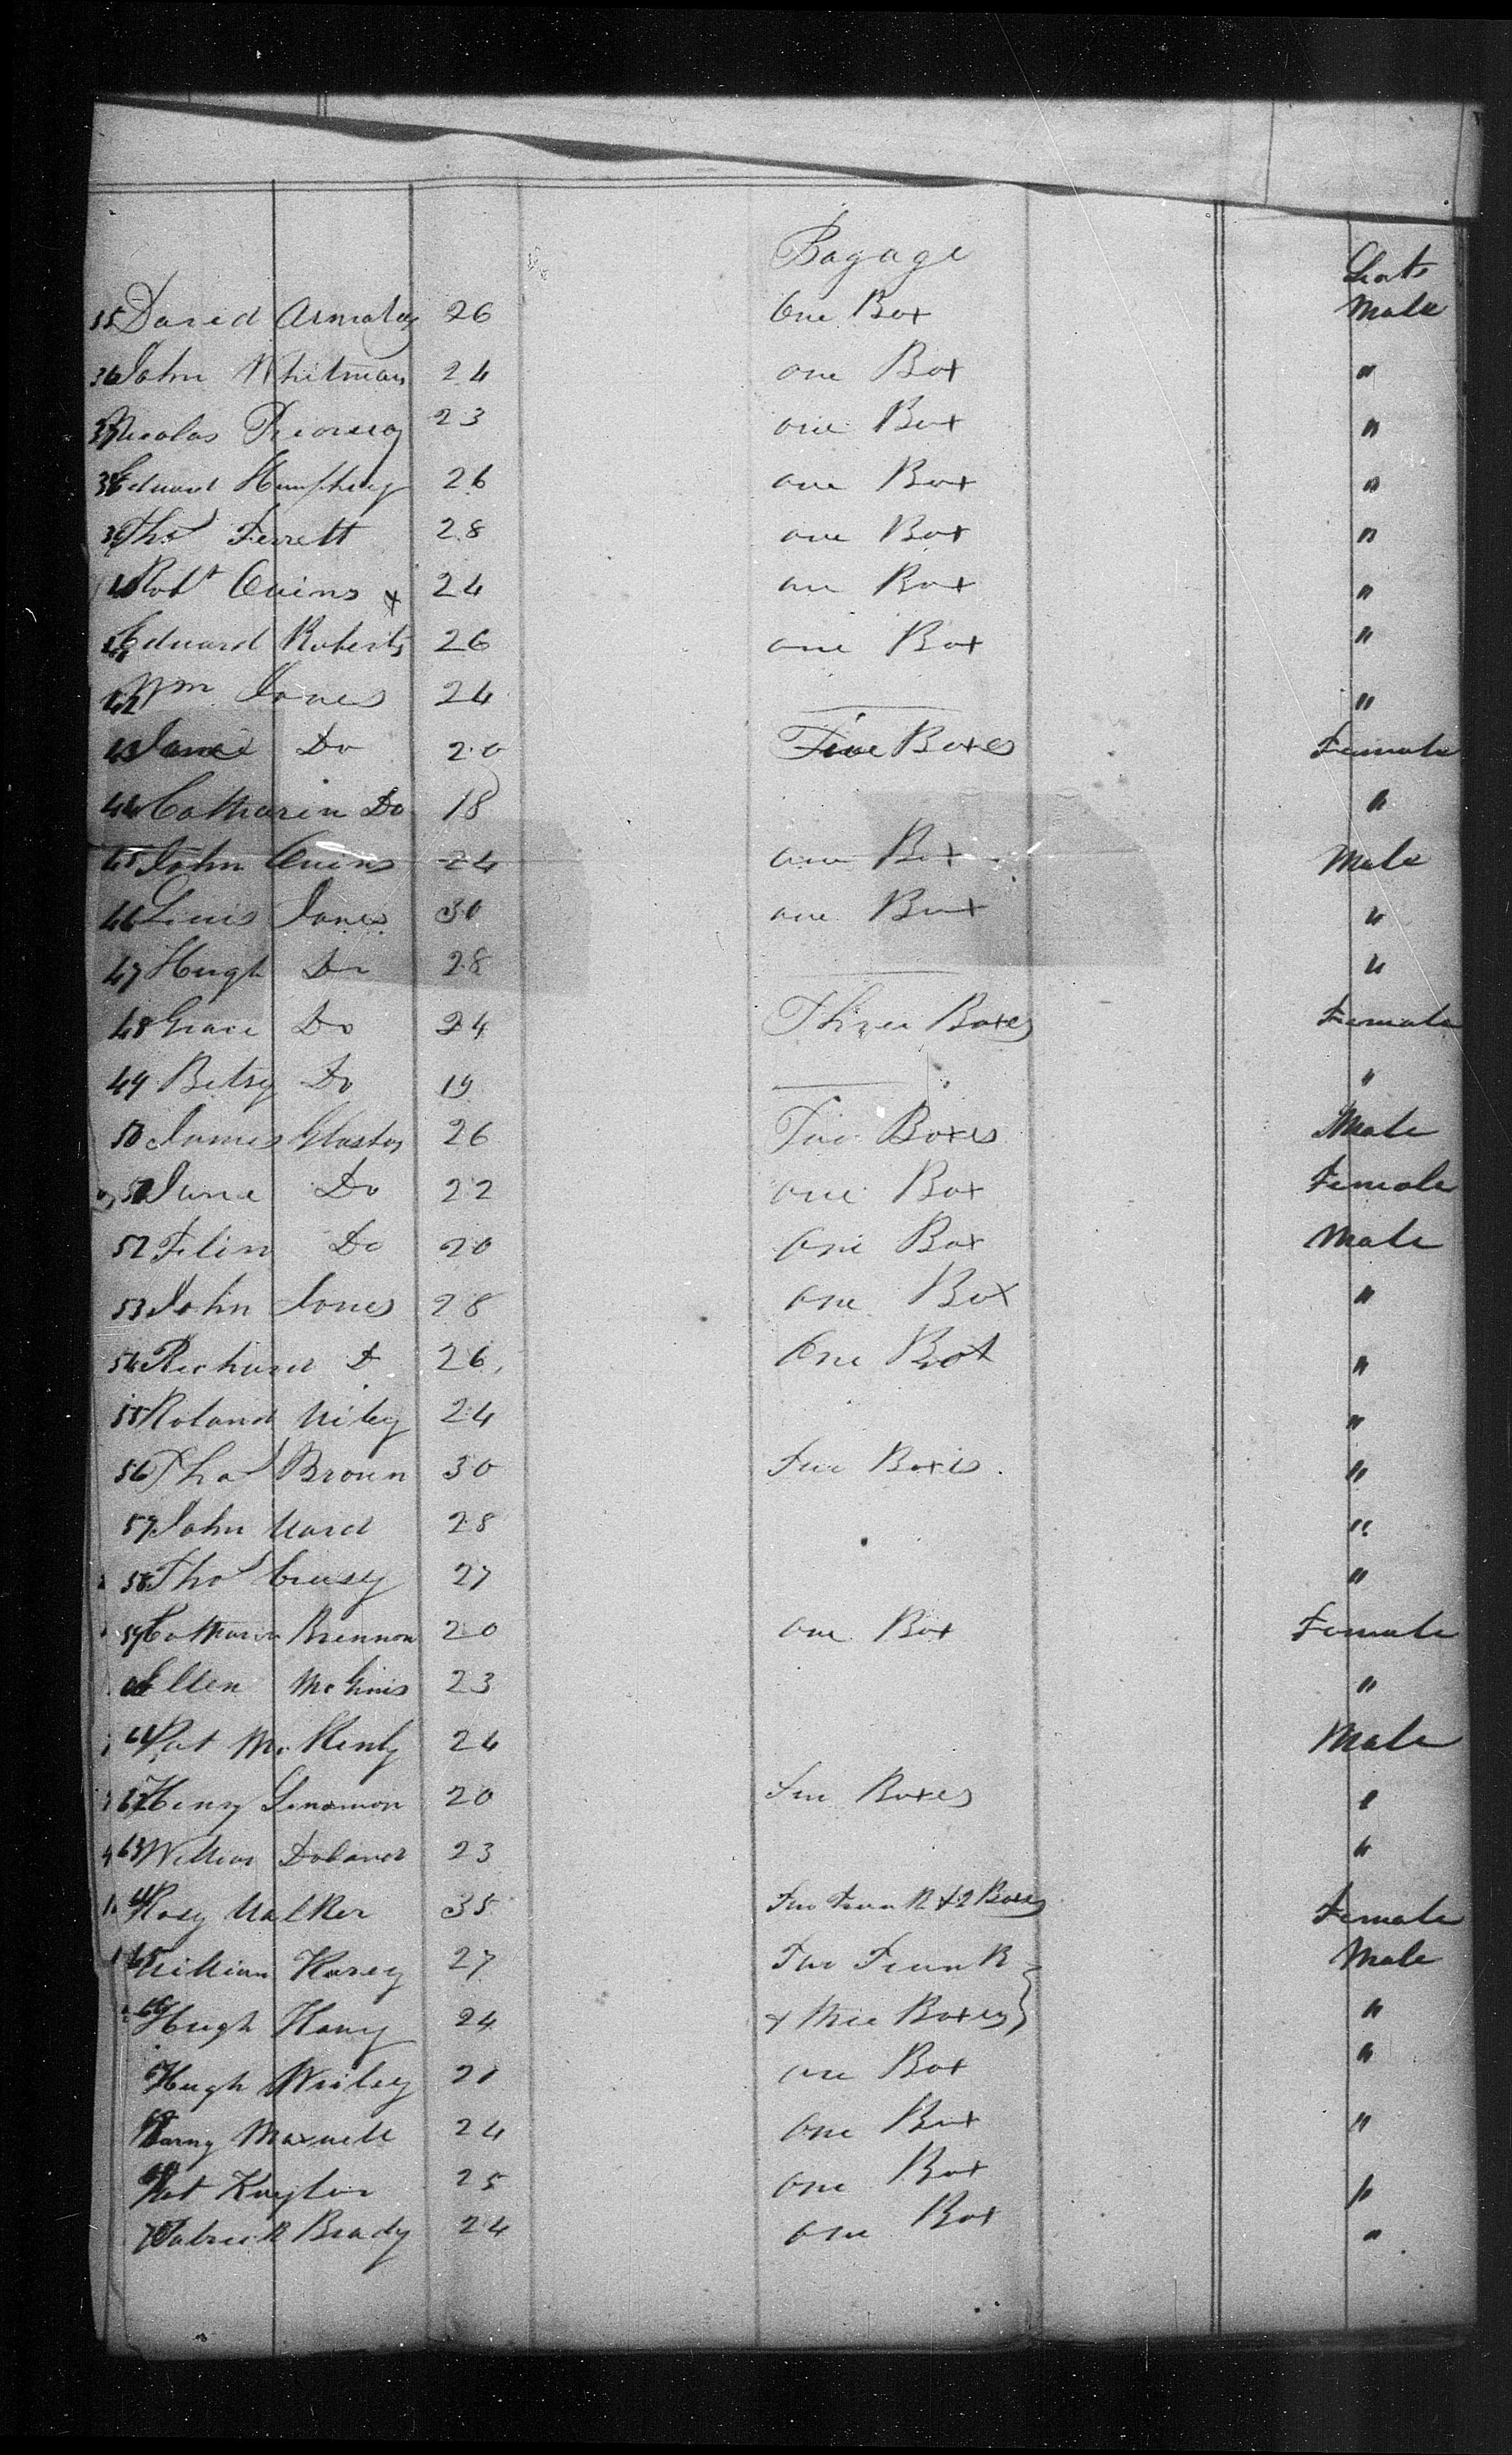 Bagage
35 David 26 One Box Male
36 John Whitman 24 one Box "
37 Nicolas 23 one Box "
38 Edward Humphrey 26 one Box "
39 Thos Ferrett 28 one Box "
40 Robt Owins x 24 one Box "
41 Edward Roberts 26 one Box "
42 Wm Jones 24 "
43 Jane Do 20 Five Boxes Female
44 Catharin Do 18 "
45 John Owens 24 one Box Male
46 Lewis Jones 30 one Box "
47 Hugh Do 28 "
48 Grace Do 24 Three Boxes Female
49 Betsy Do 19 "
50 James 26 Two Boxes Male
51 Jane Do 22 one Box Female
52 Do 20 One Box Male
53 John Jones 28 one Box "
54 Richard D 26 One Box "
55 Roland 24 "
56 Thos Brown 30 Two Boxes "
57 John Ward 28 "
58 Thos 27 "
59 Catharin Brennon 20 one Box Female
60 Ellen McGinis 23 "
61 Pat Mc 24 Male
62 Henry 20 Two Boxes "
63 William 23 "
64 Rosy Walker 35 Two Trunk & 2 Boxes Female
65 William 27 Two Trunk Male
66 Hugh 24 & three Boxes } "
Hugh 21 one Box "
68 Barny Maxwell 24 One Box "
69 Pat 25 one Box "
70 Patrick Brady 24 one Box "